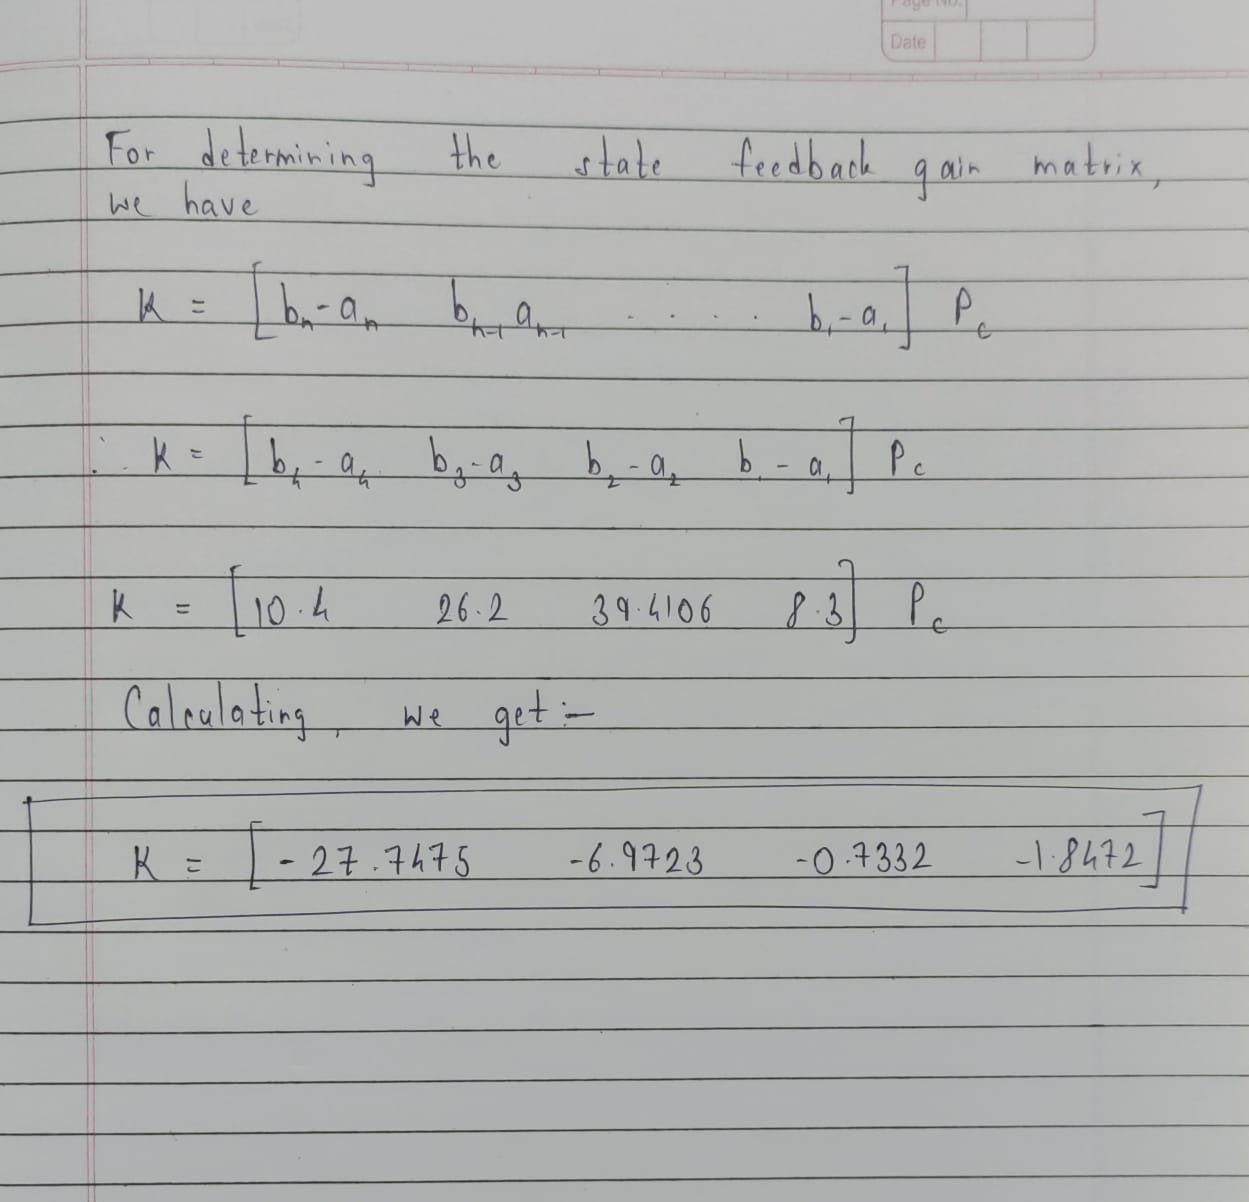 Page No.
Date
For determining the state feedback gain matrix,
we have
K = [ bₙ - aₙ bₙ₋₁ aₙ₋₁ . . . . . b₁ - a₁ ] P_c
∴ K = [ b₄ - a₄ b₃ - a₃ b₂ - a₂ b₁ - a₁ ] P_c
K = [ 10.4 26.2 39.4106 8.3 ] P_c
Calculating, we get :-
K = [ -27.7475 -6.9723 -0.7332 -1.8472 ]